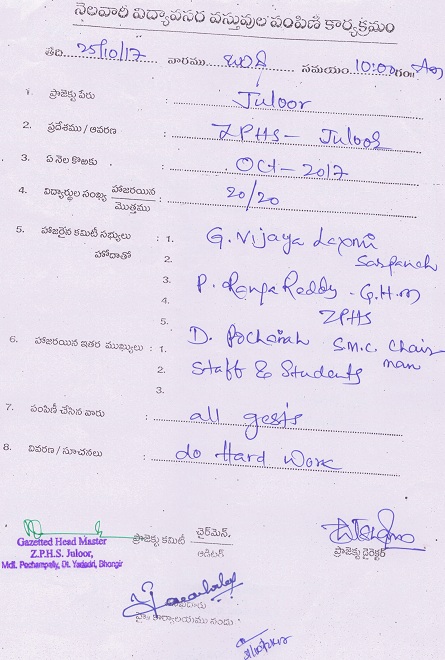 నెలవారీ విద్యావసర వస్తువుల పంపిణీ కార్యక్రమం
తేది 25/10/17 వారము బుధ సమయం 10:00 గం॥
1. ప్రాజెక్టు పేరు : Juloor
2. ప్రదేశము / ఆవరణ : ZPHS - Juloor
3. ఏ నెల కొఱకు : OCT - 2017
4. విద్యార్థుల సంఖ్య హాజరయిన / మొత్తము : 20/20
5. హాజరైన కమిటీ సభ్యులు : 1. G. Vijaya Laxmi
హోదాతో 2. Sarpanch
3. P. Ranga Reddy - G.H.M
4.
5. ZPHS
6. హాజరయిన ఇతర ముఖ్యులు : 1. D. Pochaiah S.M.C. Chair
2. Staff & Students man
3.
7. పంపిణీ చేసిన వారు : all gests
8. వివరణ / సూచనలు : do Hard Work
Gazetted Head Master
Z.P.H.S. Juloor,
Mdl. Pochampally, Dt. Yadadri, Bhongir
ప్రాజెక్టు కమిటీ చైర్మెన్,
ఆడిటర్
ప్రాజెక్టు డైరెక్టర్
కార్యాలయము నందు